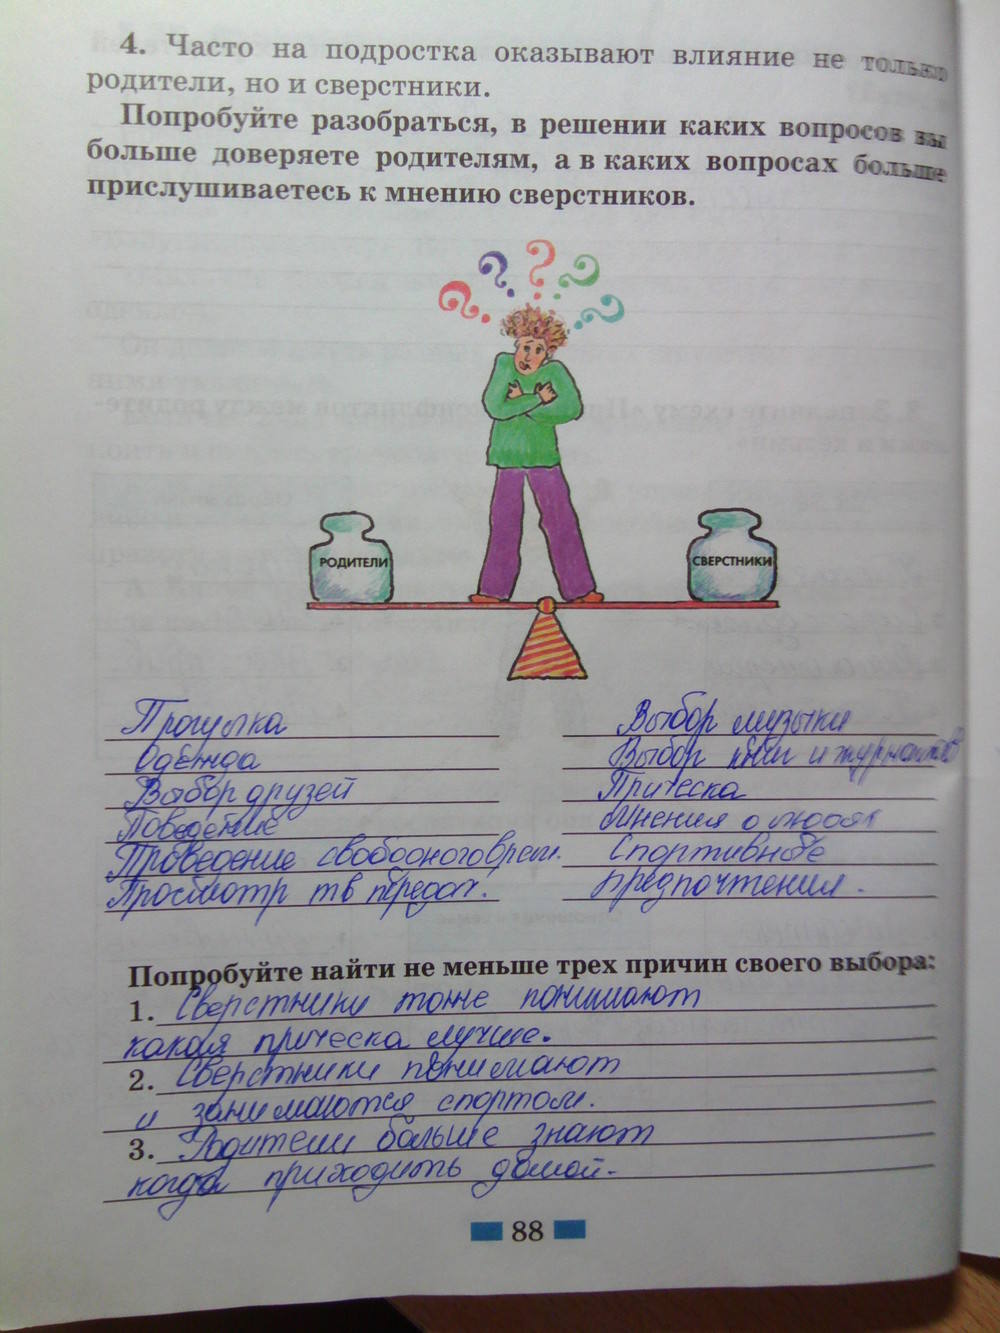 4. Часто на подростка оказывают влияние не только
родители, но и сверстники.
Попробуйте разобраться, в решении каких вопросов вы
больше доверяете родителям, а в каких вопросах больше
прислушиваетесь к мнению сверстников.
? ? ? ? ?
РОДИТЕЛИ
СВЕРСТНИКИ
Прогулка
Одежда
Выбор друзей
Поведение
Проведение свободного врем.
Просмотр тв передач.
Выбор музыки
Выбор книг и журналов
Прическа
Мнения о людях
Спортивное
предпочтения.
Попробуйте найти не меньше трех причин своего выбора:
1. Сверстники тоже понимают
какая прическа лучше.
2. Сверстники понимают
и занимаются спортом.
3. Родители больше знают
когда приходить домой.
88